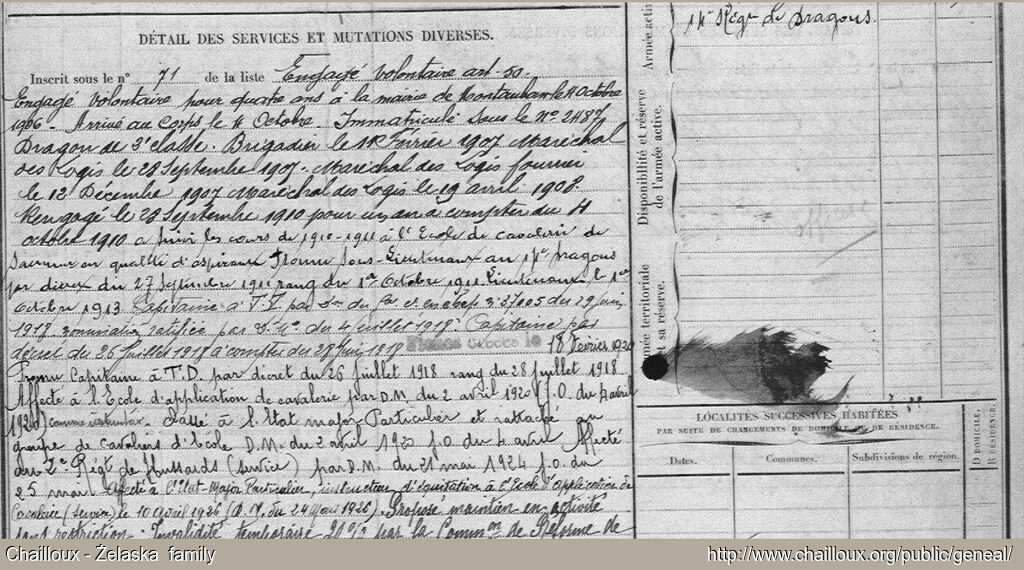 DÉTAIL DES SERVICES ET MUTATIONS DIVERSES.
Inscrit sous le n° 71 de la liste Engagé volontaire art 50.
Engagé volontaire pour quatre ans à la mairie de Montauban le 4 Octobre
1906 - Arrivé au Corps le 4 Octobre. Immatriculé sous le N° 2487
Dragon de 2e classe. Brigadier le Février 1907 Maréchal
des Logis le 28 Septembre 1907. Maréchal des Logis fourrier
le 12 Décembre 1907 Maréchal des Logis le 19 avril 1908.
Rengagé le 28 Septembre 1910 pour un an à compter du 4
octobre 1910 a suivi les cours de 1910-1911 à l'Ecole de cavalerie de
Saumur en qualité d'aspirant Promu Sous-Lieutenant au 14e Dragons
par du 27 Septembre 1911 rang du 1er Octobre 1911. Lieutenant le 1er
Octobre 1913. Capitaine à T.T. par du en chef n° du 29 juin
1918 nomination ratifiée par du 4 juillet 1918. Capitaine par
décret du 26 juillet 1918 à compter du 28 juin 1918
18 Fevrier 1920
Promu Capitaine à T.D. par décret du 26 Juillet 1918 rang du 28 juillet 1918
Affecté à l'Ecole d'application de cavalerie par D.M. du 2 avril 1920 (J.O. du 4 avril
1920) comme instructeur. Classé à l'Etat major Particulier et rattaché au
groupe de cavaliers d'école D.M. du 2 avril 1920 J.O. du 4 avril Affecté
au 2e Régt de Hussards (service) par D.M. du 21 mai 1924 J.O. du
25 mai Affecté à l'Etat-Major Particulier, instructeur d'équitation à l'Ecole d'application de
Cavalerie (Service) le 10 avril 1926 du 24 1926). Proposé maintien en activité
sans restriction. Invalidité temporaire 20% par la Common de Réforme de
Armée acti
14e Régt de Dragons.
Disponibilité et réserve
de l'armée active.
mée territoriale
et sa réserve.
LOCALITÉS SUCCESSIVES HABITÉES
PAR SUITE DE CHANGEMENTS DE DOMICILE OU DE RÉSIDENCE.
Dates.
Communes.
Subdivisions de région.
D DOMICILE,
R RÉSIDENCE.
Chailloux - Żelaska family
http://www.chailloux.org/public/geneal/